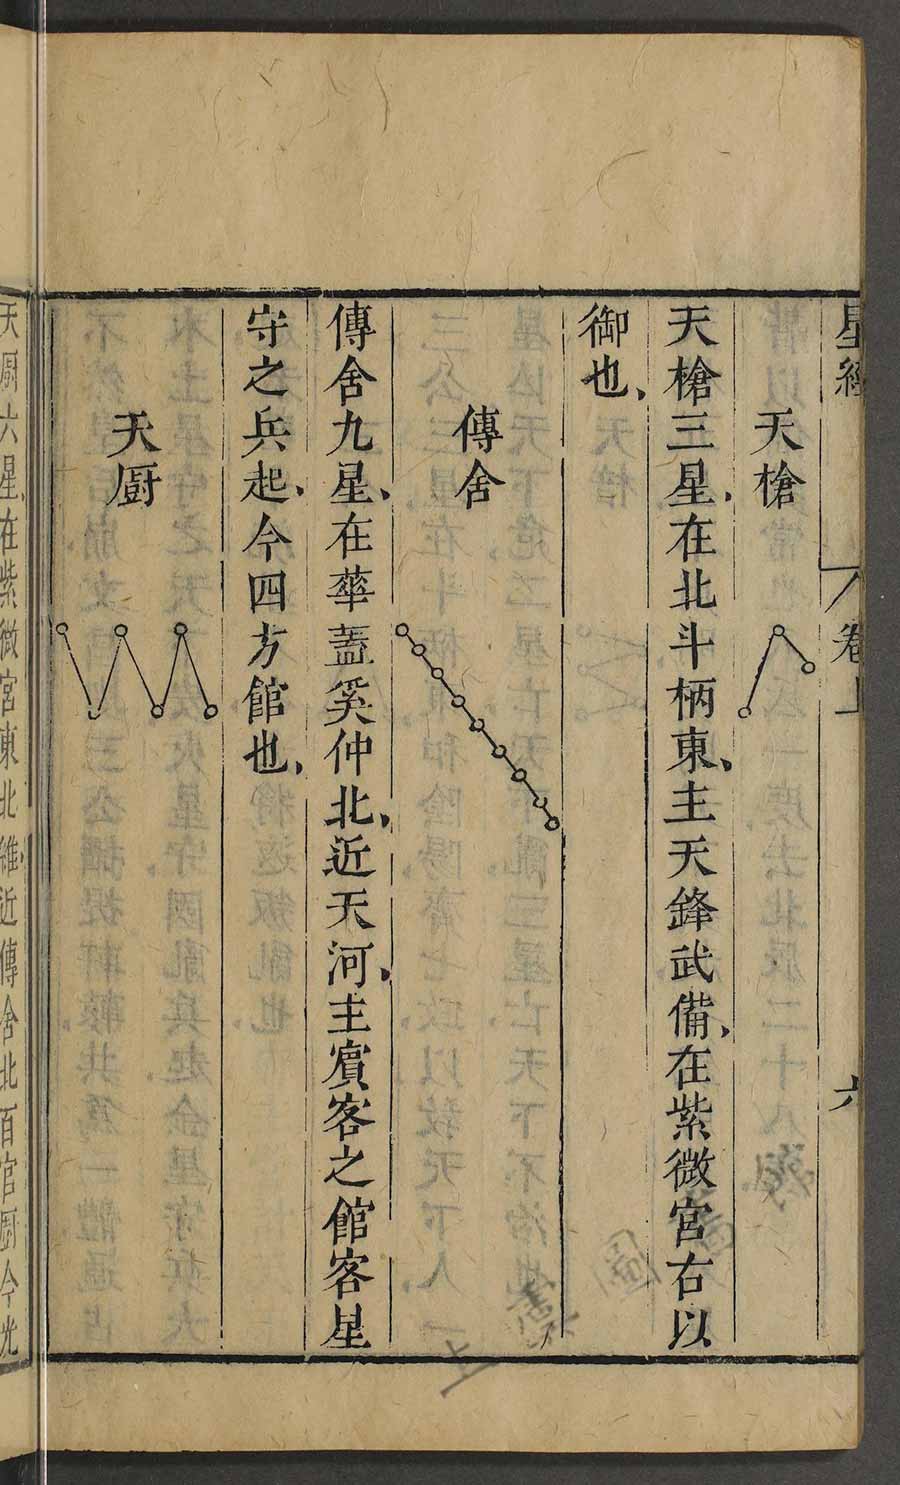 星經 卷上 六
天槍
天槍三星在北斗柄東主天鋒武備在紫微宮右以
御也
傳舍
傳舍九星在華蓋奚仲北近天河主賓客之館客星
守之兵起今四方館也
天厨
天厨六星在紫微宮東北維近傳舍北百官厨今光